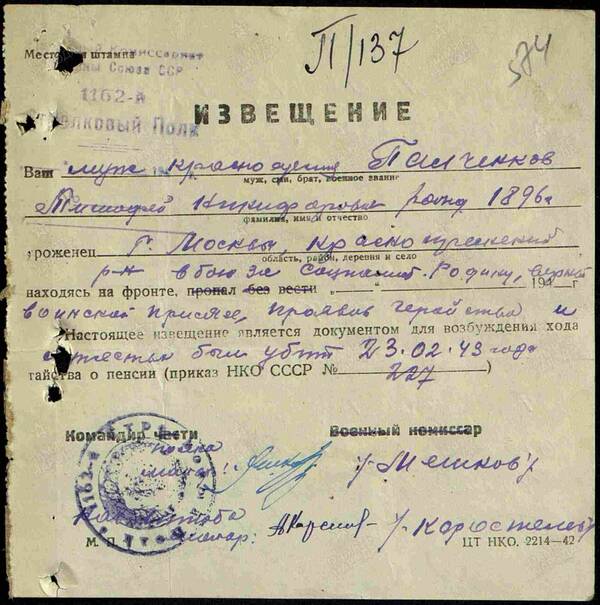 П/137
574
Место для штампа
Народный Комиссариат
Обороны Союза ССР
1162-й
Стрелковый Полк
ИЗВЕЩЕНИЕ
Ваш муж красноармеец Палченков
муж, сын, брат, военное звание
Тимофей Никифорович рожд 1896 г
фамилия, имя и отчество
уроженец г. Москвы, Краснопресненский
область, район, деревня и село
р-н в бою за Социалист. Родину, верный
находясь на фронте, пропал без вести „ “ 194 г
воинской присяге, проявив геройство и
Настоящее извещение является документом для возбуждения хода
мужество был убит 23.02.43 года
тайства о пенсии (приказ НКО СССР № 227)
Командир части
Военный комиссар
полка
/Мешков/
Нач штаба
/Коростелев/
М. П.
ЦТ НКО. 2214—42